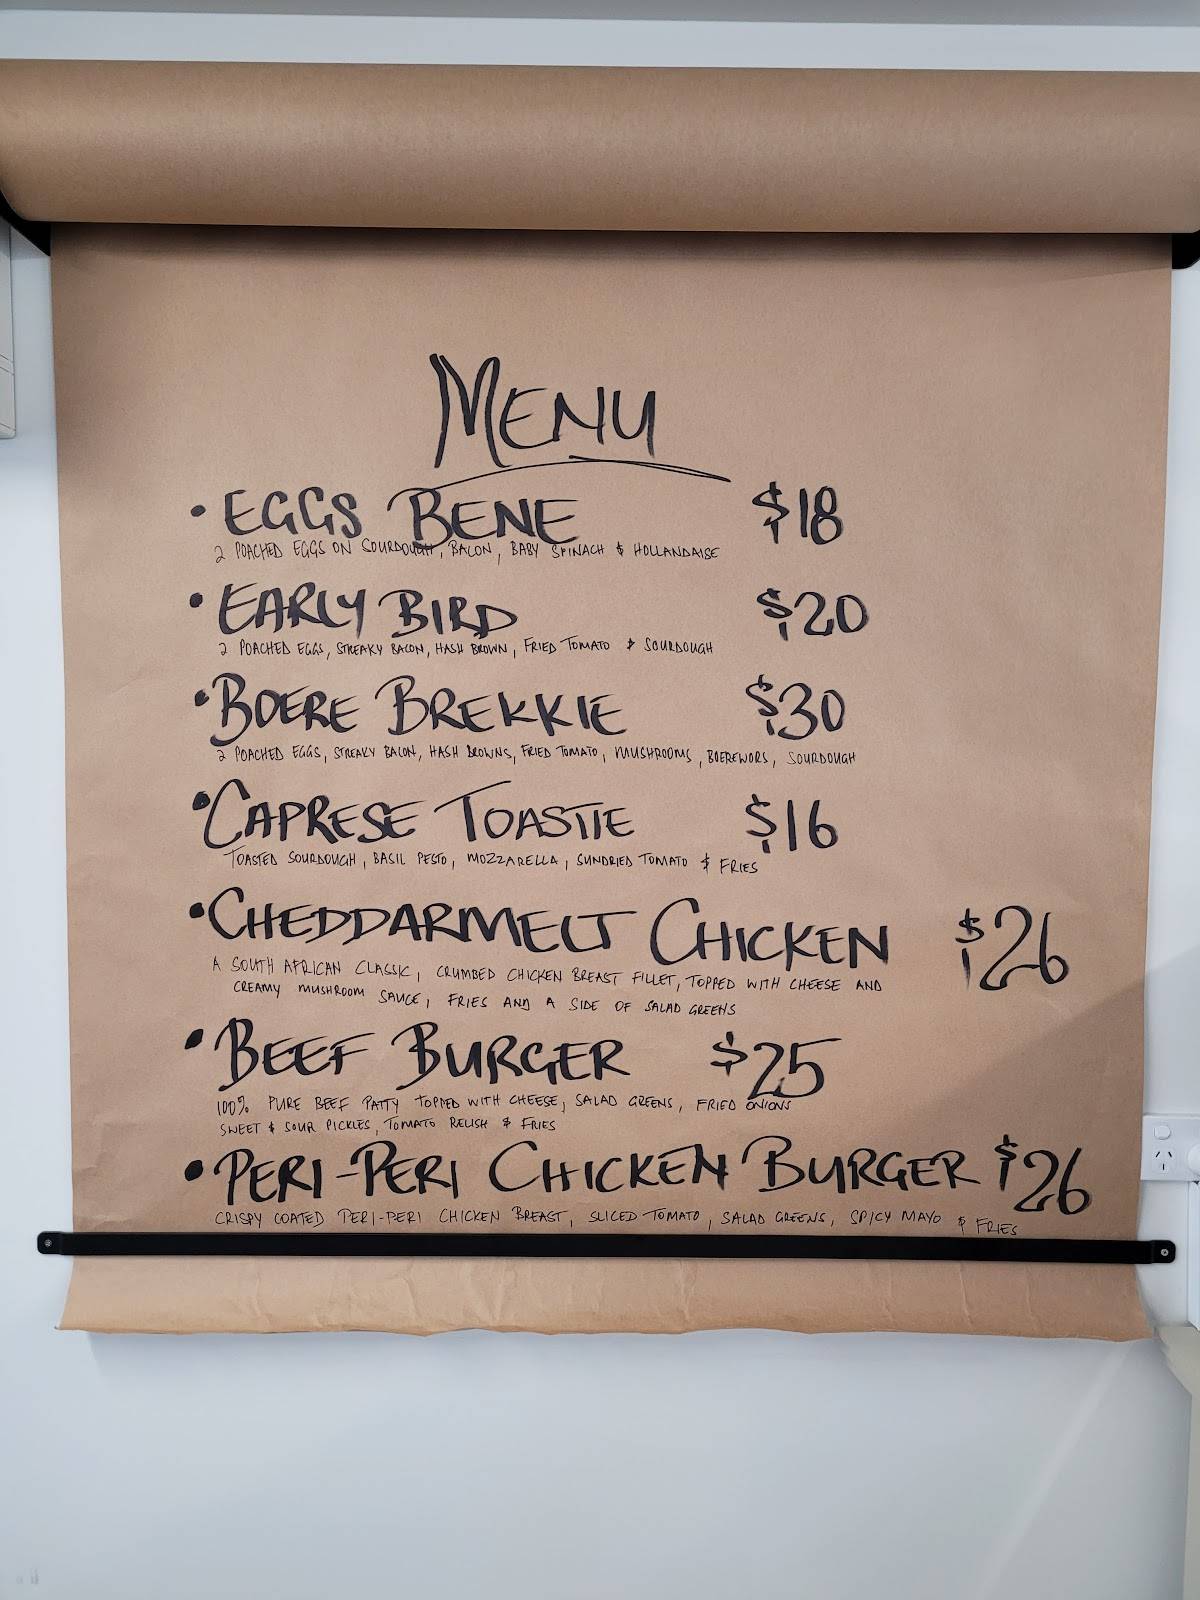 MENU
• EGGS BENE $18
2 POACHED EGGS ON SOURDOUGH, BACON, BABY SPINACH & HOLLANDAISE
• EARLY BIRD $20
2 POACHED EGGS, STREAKY BACON, HASH BROWN, FRIED TOMATO & SOURDOUGH
• BOERE BREKKIE $30
2 POACHED EGGS, STREAKY BACON, HASH BROWNS, FRIED TOMATO, MUSHROOMS, BOEREWORS, SOURDOUGH
• CAPRESE TOASTIE $16
TOASTED SOURDOUGH, BASIL PESTO, MOZZARELLA, SUNDRIED TOMATO & FRIES
• CHEDDARMELT CHICKEN $26
A SOUTH AFRICAN CLASSIC, CRUMBED CHICKEN BREAST FILLET, TOPPED WITH CHEESE AND
CREAMY MUSHROOM SAUCE, FRIES AND A SIDE OF SALAD GREENS
• BEEF BURGER $25
100% PURE BEEF PATTY TOPPED WITH CHEESE, SALAD GREENS, FRIED ONIONS
SWEET & SOUR PICKLES, TOMATO RELISH & FRIES
• PERI-PERI CHICKEN BURGER $26
CRISPY COATED PERI-PERI CHICKEN BREAST, SLICED TOMATO, SALAD GREENS, SPICY MAYO & FRIES